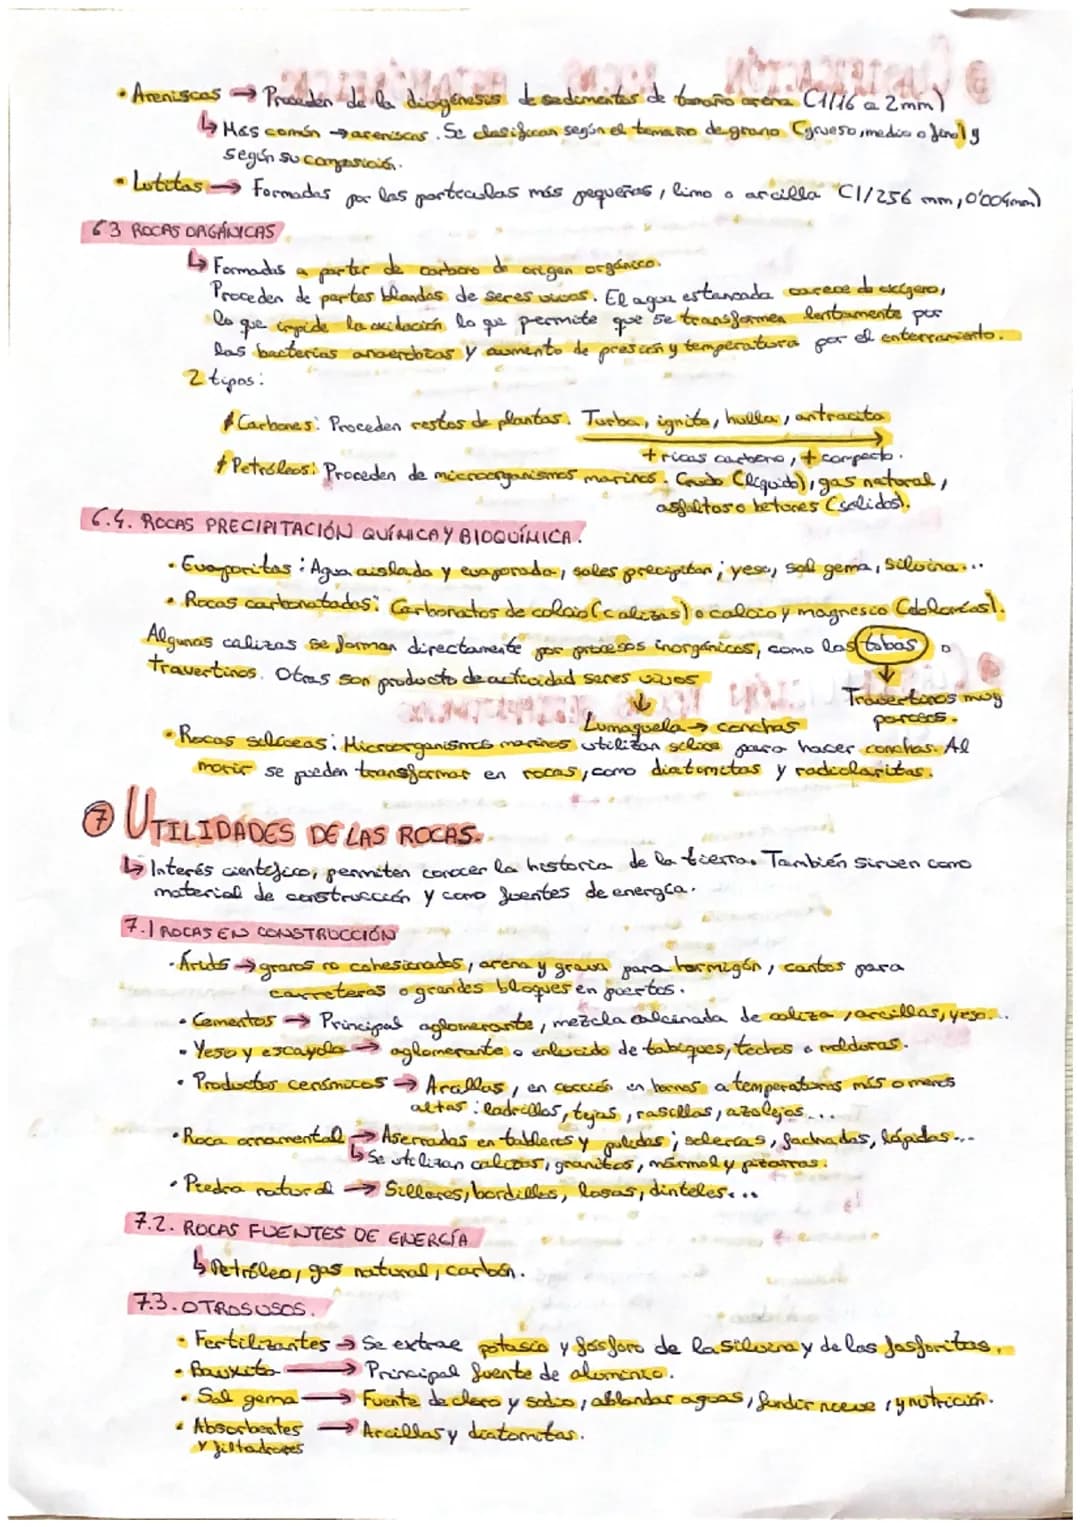 • Areniscas → Proceden de la diagénesis de sedimentos de tamaño arena (1/16 a 2mm)
↳ Más común → areniscas. Se clasifican según el tamaño de grano (grueso, medio o fino) y
según su composición.
• Lutitas → Formadas por las partículas más pequeñas, limo o arcilla (1/256 mm, 0'004mm)
6.3 ROCAS ORGÁNICAS
↳ Formadas a partir de carbono de origen orgánico.
Proceden de partes blandas de seres vivos. El agua estancada carece de oxígero,
lo que impide la oxidación lo que permite que se transformen lentamente por
las bacterias anaerobias y aumento de presión y temperatura por el enterramiento.
2 tipos:
Carbones: Proceden restos de plantas. Turba, ignito, hulla, antracita
+ ricas carbono, + compacto.
Petróleos: Proceden de microorganismos marinos. Crudo (líquido), gas natural,
asfaltos o betunes (solidos).
6.4. ROCAS PRECIPITACIÓN QUÍMICA Y BIOQUÍMICA.
• Evaporitas: Agua aislada y evaporada, sales precipitan; yeso, sal gema, silvina...
• Rocas carbonatadas: Carbonatos de calcio (calizas) o calcio y magnesio (dolomías).
Algunas calizas se forman directamente por procesos inorgánicos, como las tobas o
travertinos. Otras son producto de actividad seres vivos
Travertinos muy
porosos.
Lumaquela → conchas
• Rocas silíceas: Microorganismos marinos utilizan sílice para hacer conchas. Al
morir se pueden transformar en rocas, como diatomitas y radiolaritas.
⑦ UTILIDADES DE LAS ROCAS.
↳ Interés científico, permiten conocer la historia de la tierra. También sirven como
material de construcción y como fuentes de energía.
7.1 ROCAS EN CONSTRUCCIÓN
• Áridos → granos no cohesionados, arena y grava para hormigón, cantos para
carreteras o grandes bloques en puertos.
• Cementos → Principal aglomerante, mezcla calcinada de caliza, arcillas, yeso...
• Yeso y escayola → aglomerante o enlucido de tabiques, techos o molduras.
• Productos cerámicos → Arcillas, en cocción en hornos a temperaturas más o menos
altas: ladrillos, tejas, rasillas, azulejos...
• Roca ornamental → Aserradas en tableros y pulidas; solerías, fachadas, lápidas...
↳ Se utilizan calizas, granitos, mármol y pizarras.
• Piedra natural → Sillares, bordillos, losas, dinteles...
7.2. ROCAS FUENTES DE ENERGÍA
↳ Petróleo, gas natural, carbón.
7.3. OTROS USOS.
• Fertilizantes → Se extrae potasio y fósforo de la silvina y de las fosforitas.
• Bauxita → Principal fuente de aluminio.
• Sal gema → Fuente de cloro y sodio, ablandar aguas, fundir nieve, y nutrición.
• Absorbentes → Arcillas y diatomitas.
y filtradores